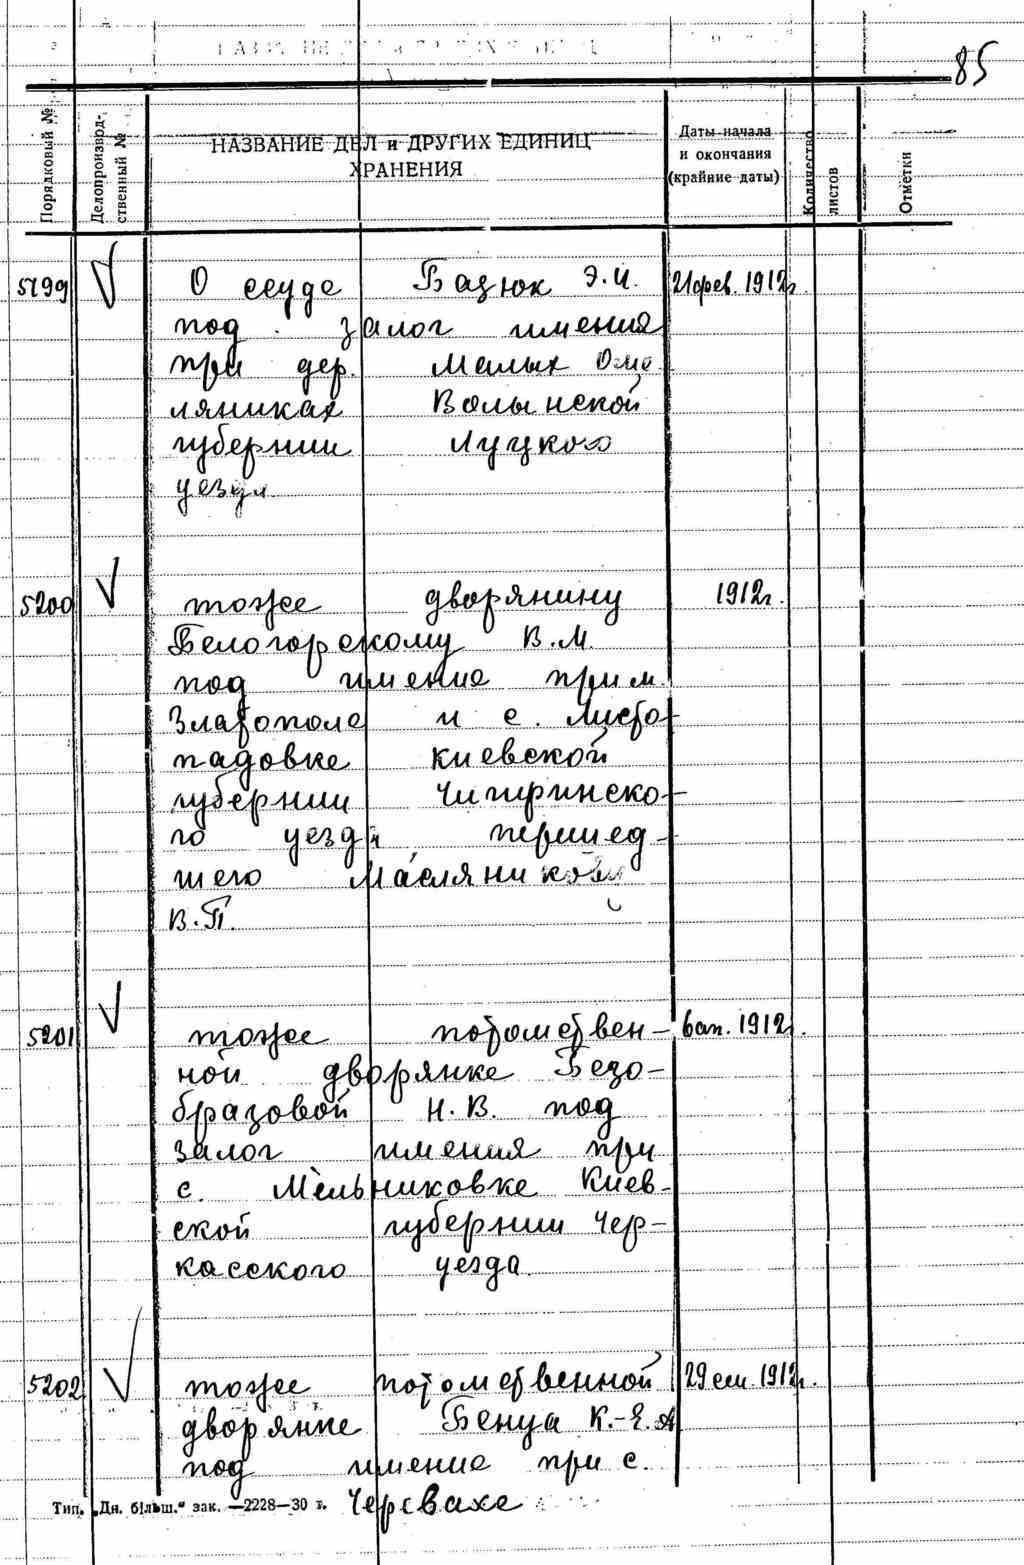 85
Порядковый №
Делопроизвод-
ственный №
НАЗВАНИЕ ДЕЛ и ДРУГИХ ЕДИНИЦ
ХРАНЕНИЯ
Даты начала
и окончания
(крайние даты)
Количество
листов
Отметки
5199 О ссуде Базюк Э.И. 21 фев. 1912г.
под залог имения
при дер. Малых Оме
ляниках Волынской
губернии Луцкого
уезда
5200 тоже дворянину 1912г.
Белогорскому В.М.
под имение при м.
Златополе и с. Листо-
падовке киевской
губернии Чигиринско-
го уезда перешед-
шего Масляникову
В.П.
5201 тоже потомствен- 6 ап. 1912г.
ной дворянке Безо-
бразовой Н.В. под
залог имения при
с. Мельниковке Киев-
ской губернии Чер-
касского уезда
5202 тоже потомственной 29 1912г.
дворянке Бенуа К.-Е.А
под имение при с.
Тип. „Дн. більш." зак. —2228—30 г. Черевахе